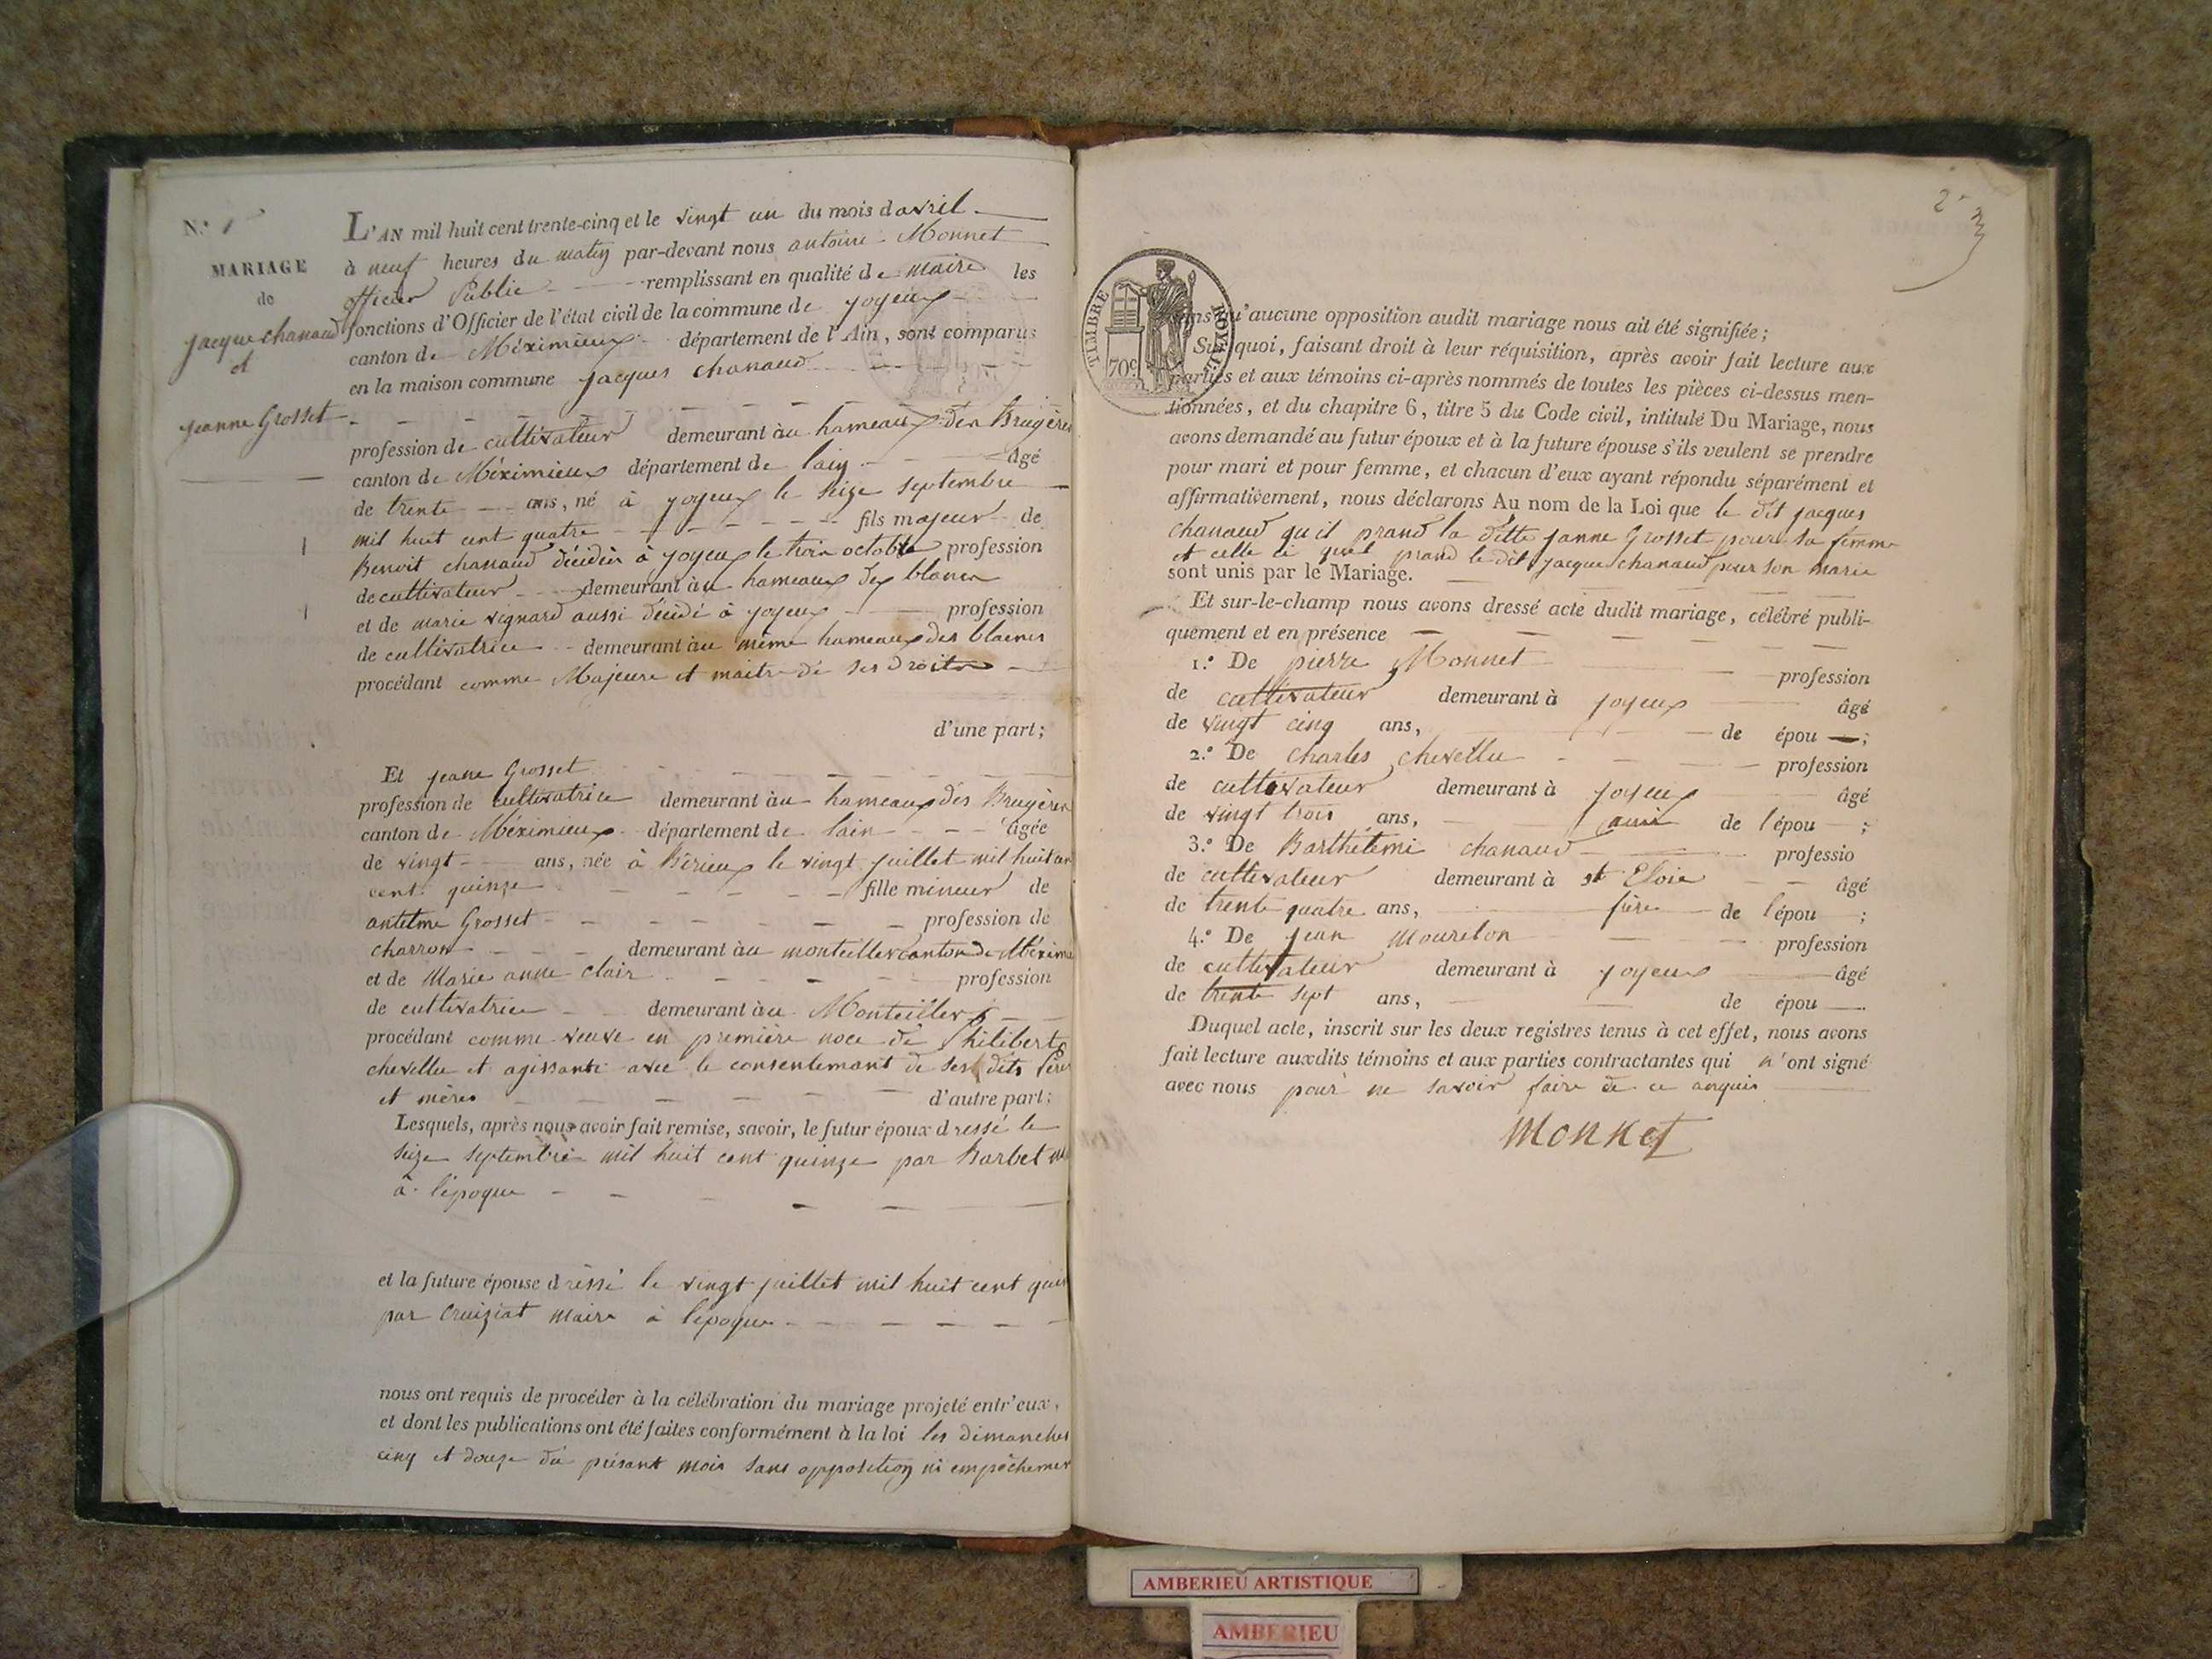 N.° 1
MARIAGE
de
jacque chanaud
et
jeanne Grosset
L'AN mil huit cent trente-cinq et le vingt un du mois d'avril
à neuf heures du matin par-devant nous antoine Monnet
officier Public remplissant en qualité de maire les
fonctions d'Officier de l'état civil de la commune de joyeux
canton de Méximieux département de l'Ain, sont comparus
en la maison commune jacques chanaud
profession de cultivateur demeurant à au hameaux des Bruyères
canton de Méximieux département de lain âgé
de trente ans, né à joyeux le seize septembre
mil huit cent quatre fils majeur de
Benoit chanaud décédés à joyeux le trois octobre profession
de cultivateur demeurant à au hameaux des blanes
et de marie vignard aussi décédé à joyeux profession
de cultivatrice demeurant à au même hameaux des blanes
procédant comme Majeure et maitre de ses droits
d'une part;
Et jeane Grosset
profession de cultivatrice demeurant à au hameaux des Bruyères
canton de Méximieux département de lain âgée
de vingt ans, née à Birieux le vingt juillet mil huit
cent quinze fille mineur de
antelme Grosset profession de
charron demeurant à au monteiller canton de Méximi
et de Marie anne clair profession
de cultivatrice demeurant à au Monteiller
procédant comme veuve en première noce de Philibert
chevellu et agissante avec le consentemant de ses dits Père
et mères d'autre part;
Lesquels, après nous avoir fait remise, savoir, le futur époux dressé le
seize septembre mil huit cent quinze par Barbet
à l'époque
et la future épouse dressé le vingt juillet mil huit cent quin
par Cruiziat maire à l'époque
nous ont requis de procéder à la célébration du mariage projeté entr'eux,
et dont les publications ont été faites conformément à la loi les dimanches
cinq et douze du présant mois sans opposition ni empêchemen
2
TIMBRE ROYAL
70c
sans qu'aucune opposition audit mariage nous ait été signifiée;
Sur quoi, faisant droit à leur réquisition, après avoir fait lecture aux
parties et aux témoins ci-après nommés de toutes les pièces ci-dessus men-
tionnées, et du chapitre 6, titre 5 du Code civil, intitulé Du Mariage, nous
avons demandé au futur époux et à la future épouse s'ils veulent se prendre
pour mari et pour femme, et chacun d'eux ayant répondu séparément et
affirmativement, nous déclarons Au nom de la Loi que le dit jacques
chanaud qu il prand la ditte janne Grosset pour sa femme
et celle ci quel prand le dit jacque chanaud pour son marie
sont unis par le Mariage.
Et sur-le-champ nous avons dressé acte dudit mariage, célébré publi-
quement et en présence
1.° De pierre Monnet profession
de cultivateur demeurant à joyeux âgé
de vingt cinq ans, de épou ;
2.° De charles chevellu profession
de cultivateur demeurant à joyeux âgé
de vingt trois ans, ami de l'épou ;
3.° De Barthélemi chanaud professio
de cultivateur demeurant à st Eloie âgé
de trente quatre ans, frère de l'épou ;
4.° De jean Mourelon profession
de cultivateur demeurant à joyeux âgé
de trente sept ans, de épou
Duquel acte, inscrit sur les deux registres tenus à cet effet, nous avons
fait lecture auxdits témoins et aux parties contractantes qui n'ont signé
avec nous pour ne savoir faire de ce anquis
Monnet
AMBERIEU ARTISTIQUE
AMBERIEU